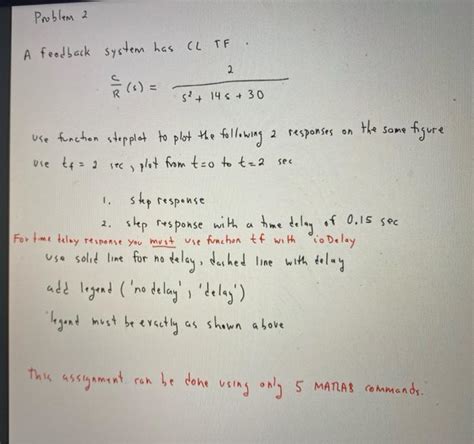 Problem 2
A feedback system has CL TF.
C/R (s) = 2 / s² + 14s + 30
use function stepplot to plot the following 2 responses on the same figure
use tf = 2 sec, plot from t=0 to t=2 sec
1. step response
2. step response with a time delay of 0.15 sec
For time delay response you must use function tf with ioDelay
use solid line for no delay, dashed line with delay
add legend ('no delay', 'delay')
legend must be exactly as shown above
this assignment can be done using only 5 MATLAB commands.